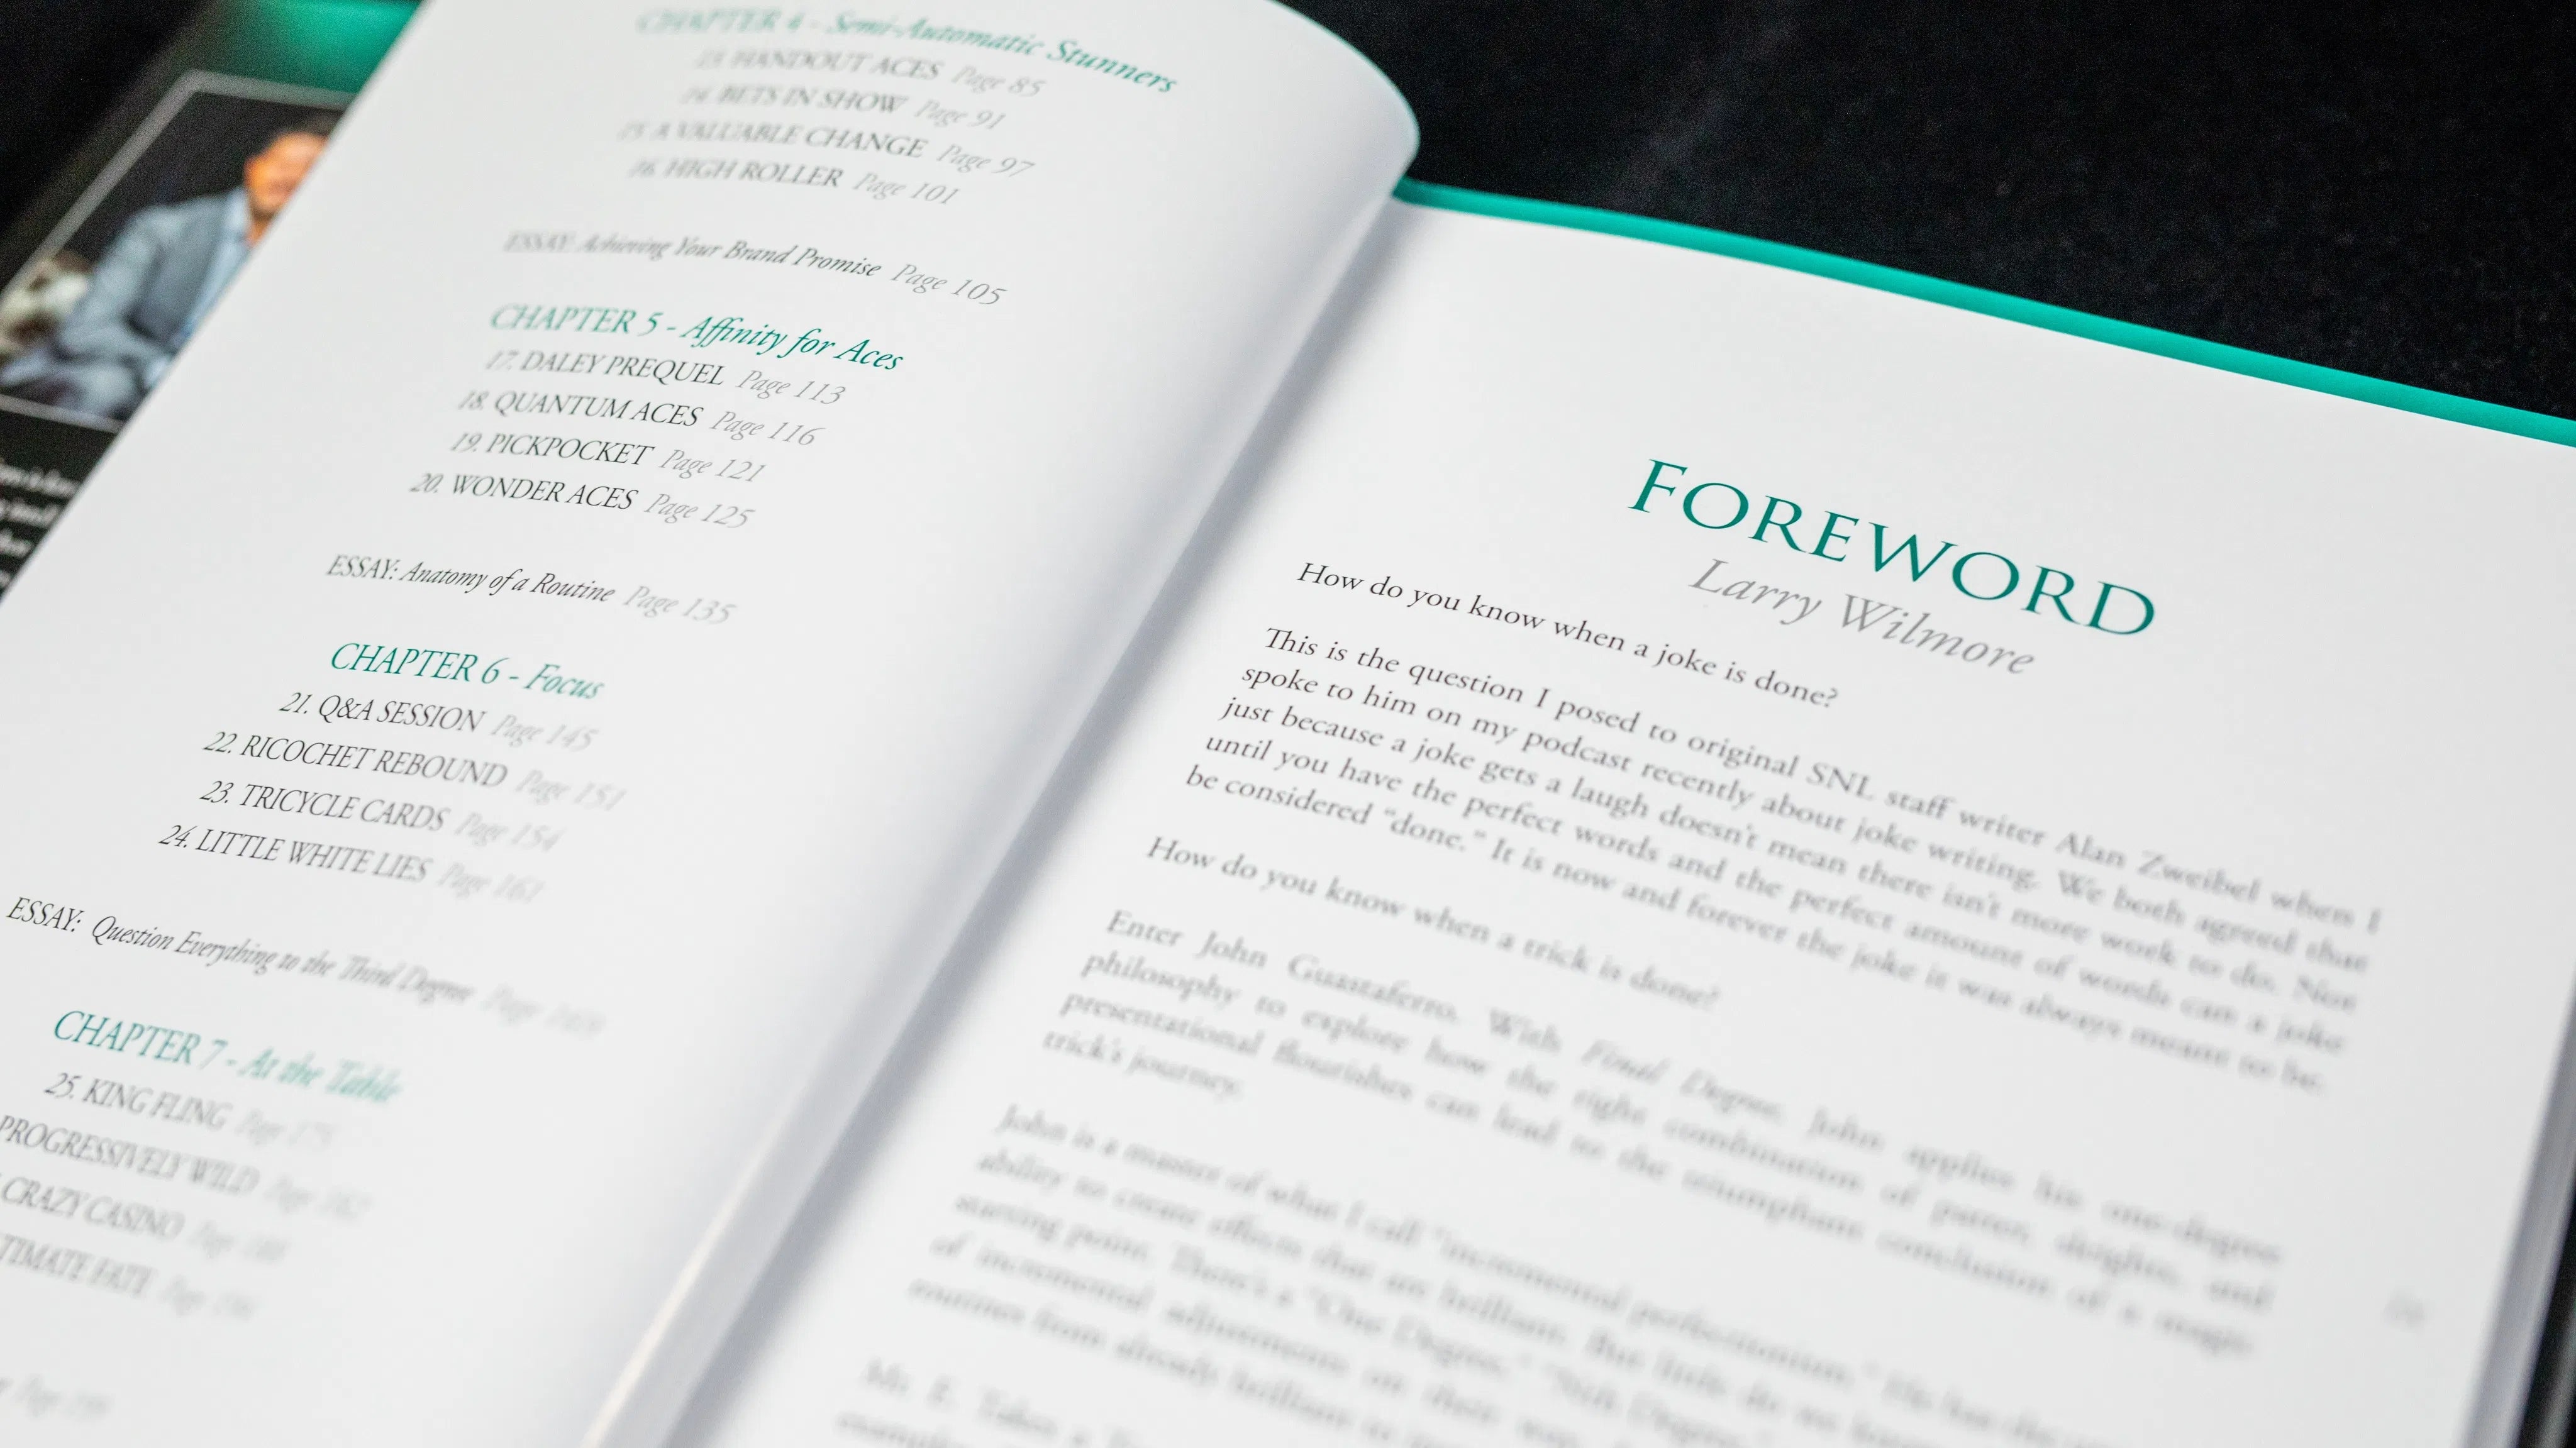 CHAPTER 4 - Semi-Automatic Stunners
13. HANDOUT ACES Page 85
14. BETS IN SHOW Page 91
15. A VALUABLE CHANGE Page 97
16. HIGH ROLLER Page 101
ESSAY: Achieving Your Brand Promise Page 105
CHAPTER 5 - Affinity for Aces
17. DALEY PREQUEL Page 113
18. QUANTUM ACES Page 116
19. PICKPOCKET Page 121
20. WONDER ACES Page 125
ESSAY: Anatomy of a Routine Page 135
CHAPTER 6 - Focus
21. Q&A SESSION Page 145
22. RICOCHET REBOUND Page 151
23. TRICYCLE CARDS Page 154
24. LITTLE WHITE LIES Page 161
ESSAY: Question Everything to the Third Degree Page
CHAPTER 7 - At the Table
25. KING FLING Page
PROGRESSIVELY WILD Page
CRAZY CASINO Page
TIMATE FATE Page
Page
FOREWORD
Larry Wilmore
How do you know when a joke is done?
This is the question I posed to original SNL staff writer Alan Zweibel when I
spoke to him on my podcast recently about joke writing. We both agreed that
just because a joke gets a laugh doesn't mean there isn't more work to do. Not
until you have the perfect words and the perfect amount of words can a joke
be considered "done." It is now and forever the joke it was always meant to be.
How do you know when a trick is done?
Enter John Guastaferro. With Final Degree, John applies his one-degree
philosophy to explore how the right combination of patter, sleights, and
presentational flourishes can lead to the triumphant conclusion of a magic
trick's journey.
John is a master of what I call "incremental perfectionism." He has the
ability to create effects that are brilliant. But little do we know
starting point. There's a "One Degree," "Nth Degree"
of incremental adjustments on their way
routines from already brilliant to
Mr. E. Takes a